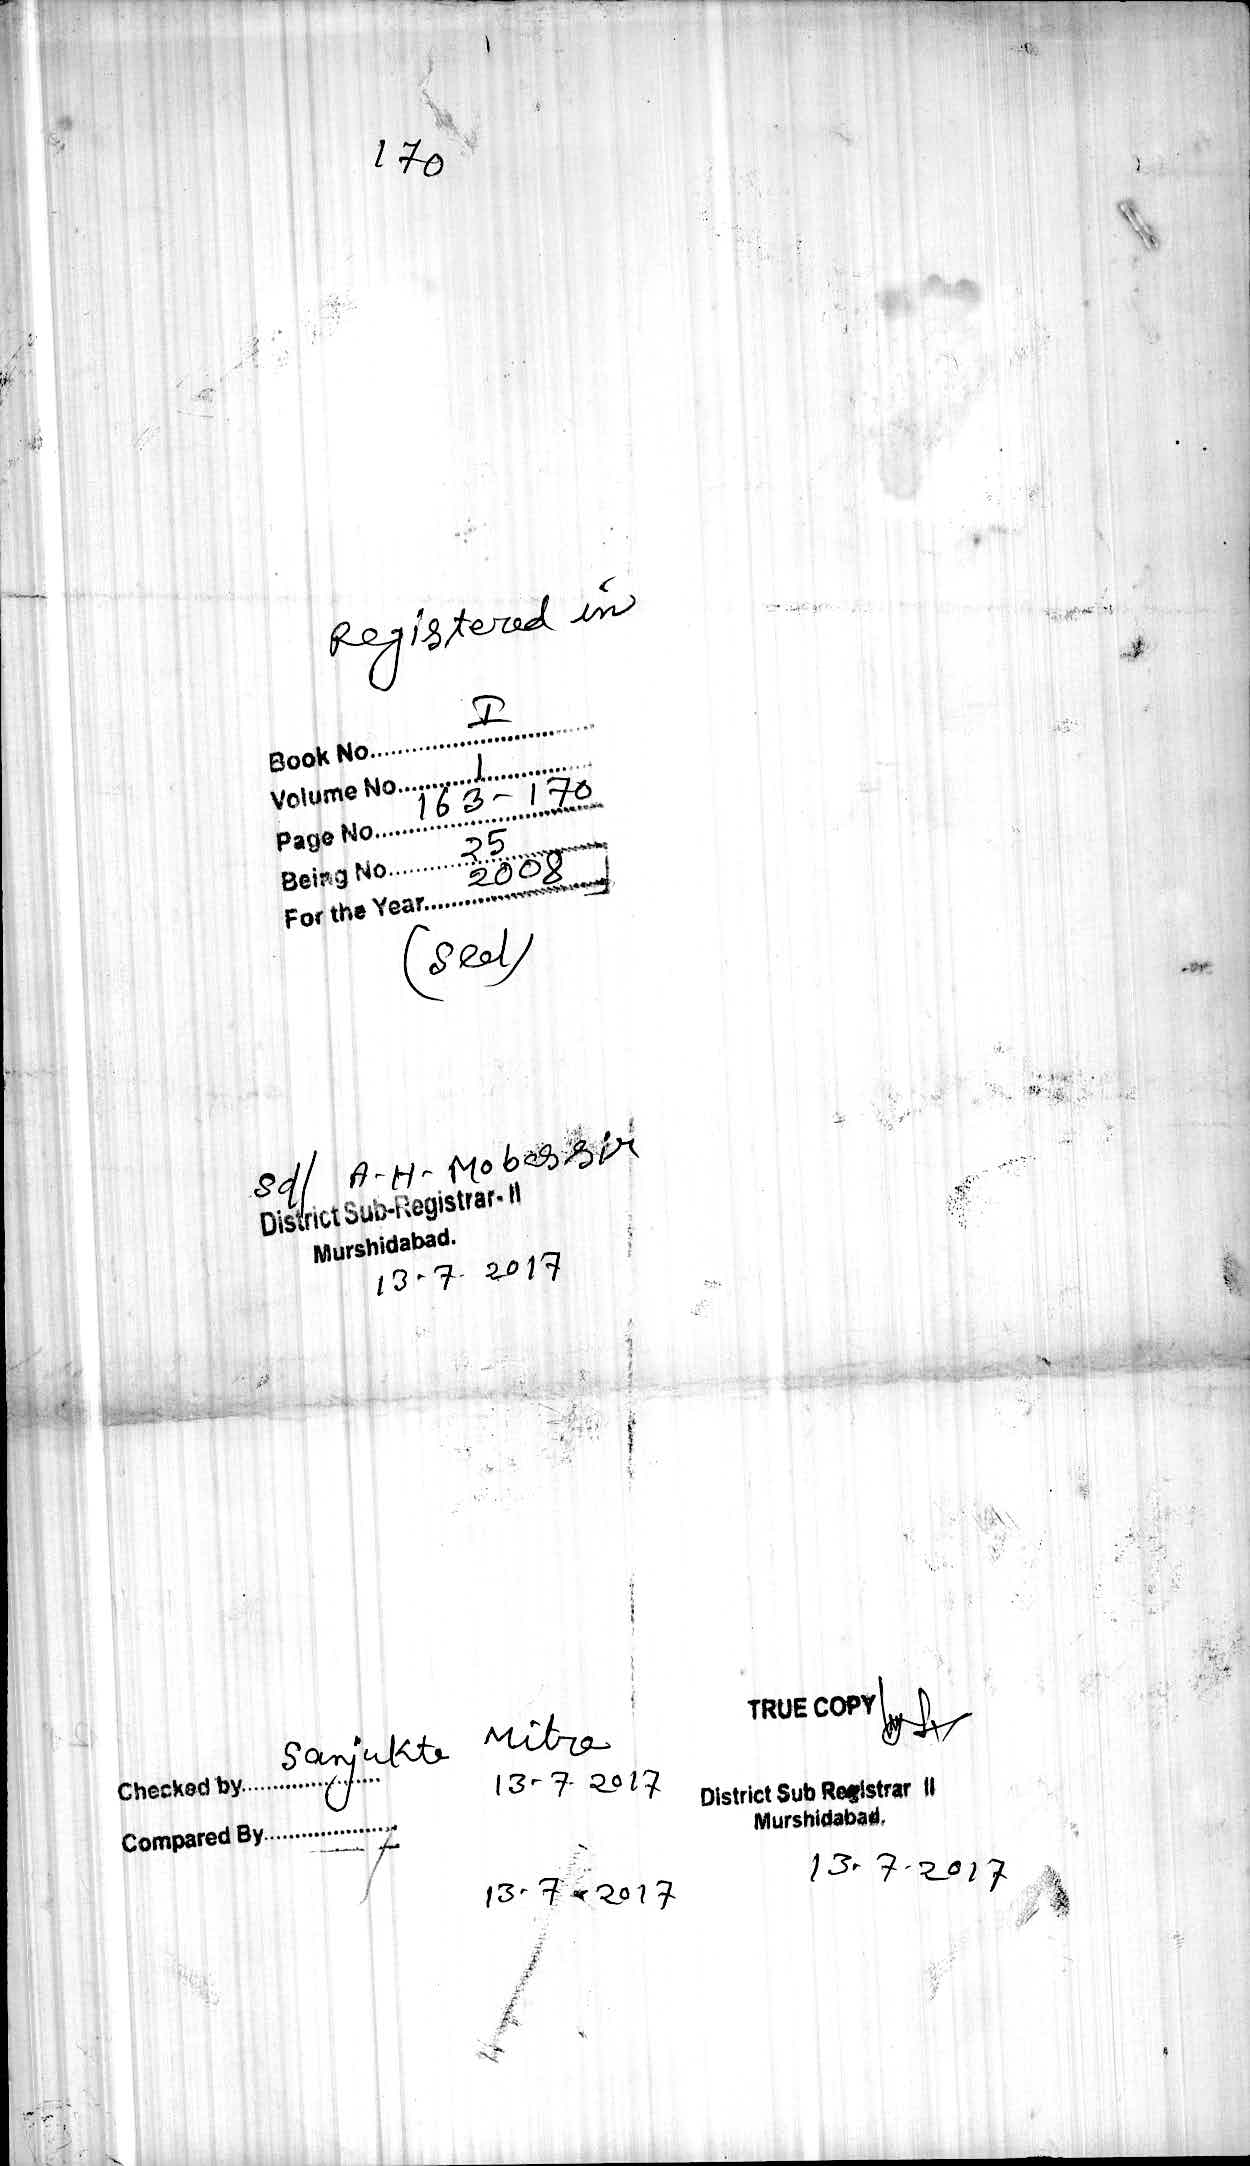 170
Registered in
Book No. I
Volume No. 1
Page No. 163-170
Being No. 25
For the Year. 2008
(Seal)
Sd/ A-H- Mobassir
District Sub-Registrar- II
Murshidabad.
13-7-2017
TRUE COPY
Sanjukta Mitra
Checked by
13-7-2017
District Sub Registrar II
Murshidabad.
Compared By
13-7-2017
13-7-2017